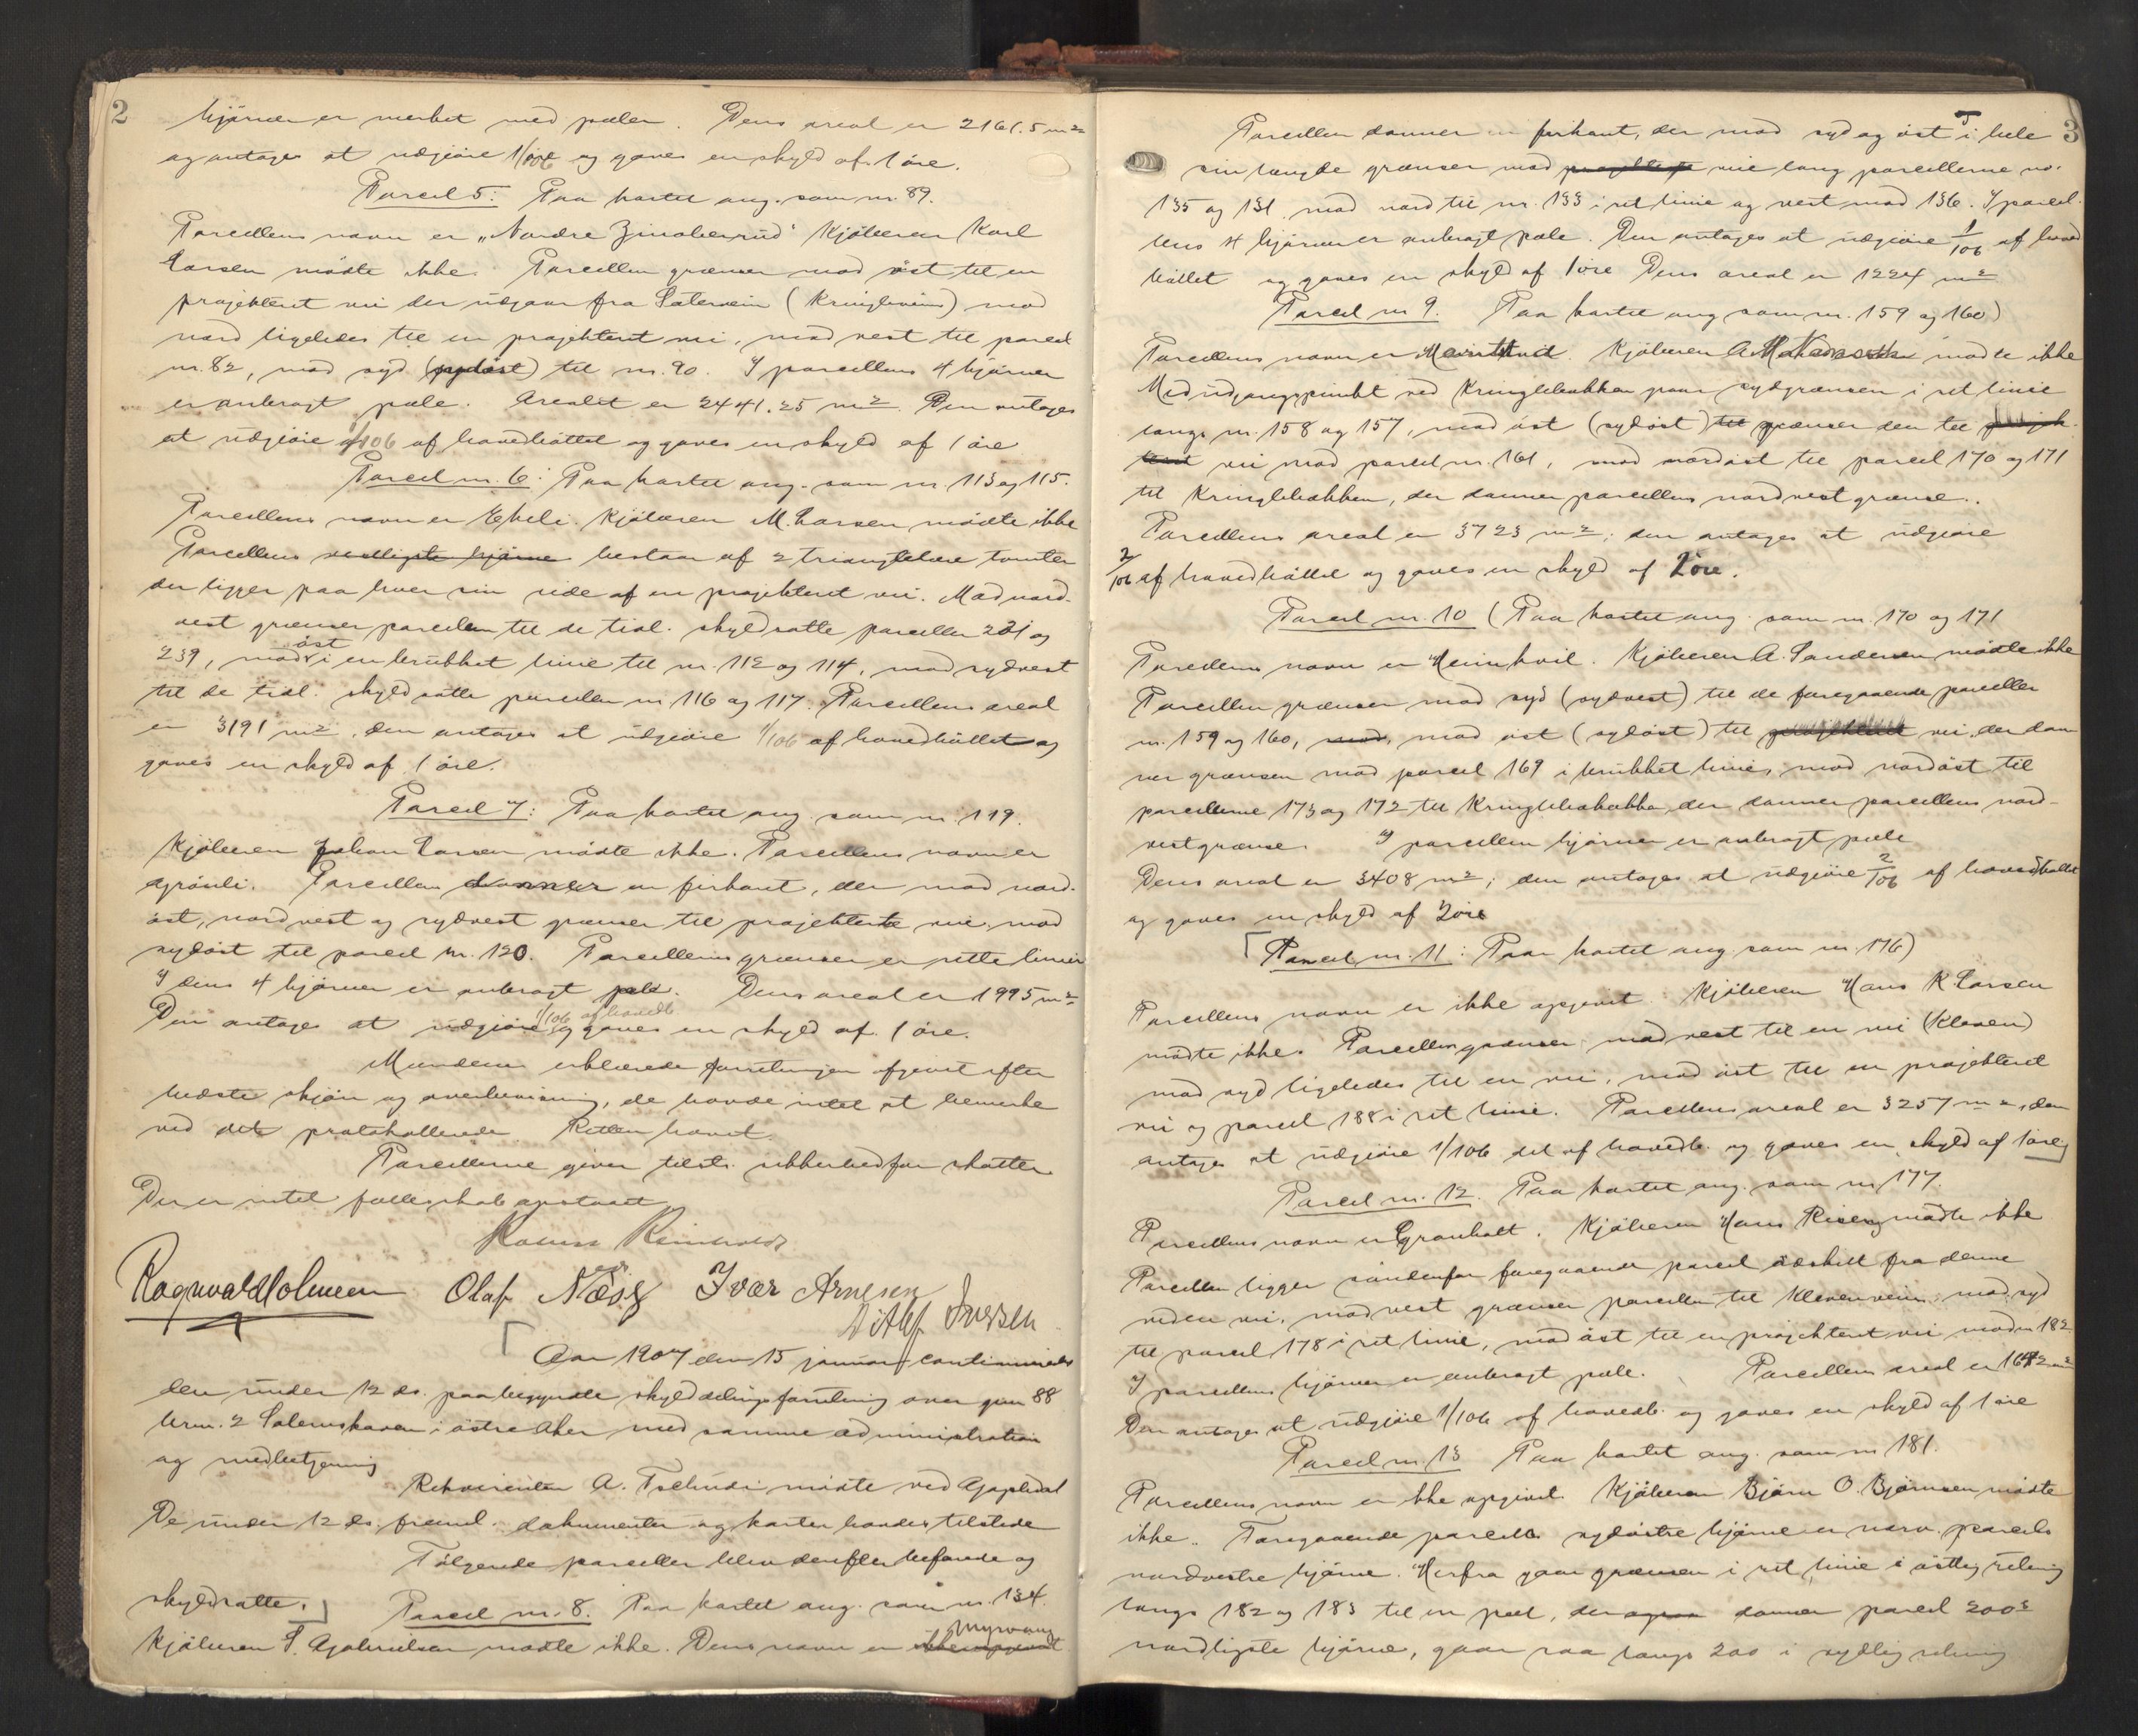 2
hjörner er merket med pæler. Dens areal er 2161.5 m²
og antages at udgjøre 1/106 og gaves en skyld af 1 öre.
Parcel 5: Paa kartet ang. som nr. 89.
Parcellens navn er „Nordre Zinoberrud" Kjöberen Karl
Larsen mödte ikke. Parcellen grænser mod öst til en
projekteret vei der udgaar fra Sætervein (Kringlevein) mod
nord ligeledes til en projekteret vei, mod vest til parcel
nr. 82, mod syd (sydöst) til nr. 90. I parcellens 4 hjörner
er anbragt pæle. Arealet er 2441.25 m². Den antages
at udgjöre 1/106 af hovedböllet og gaves en skyld af 1 öre
Parcel nr. 6: Paa kartet ang. som nr. 113 og 115.
Parcellens navn er Ekeli. Kjöberen M. Larsen mödte ikke
Parcellens vestligste hjörne bestaar af 2 triangulære tomter
der ligger paa hver sin side af en projekteret vei. Mod nord-
vest grænser parcellen til de tidl. skyldsatte parceller 231 og
239, mod öst i en brukket linie til nr. 112 og 114, mod sydvest
til de tidl. skyldsatte parceller nr 116 og 117. Parcellens areal
er 3191 m², den antages at udgjöre 1/106 af hovedböllet og
gaves en skyld af 1 öre.
Parcel 7: Paa kartet ang. som nr. 119.
Kjöberen Johan Larsen mödte ikke. Parcellens navn er
Grönli. Parcellen danner en firkant, der mod nord-
öst, nordvest og sydvest grænser til projekterte veie, mod
sydöst til parcel nr. 120. Parcellens grænser er rette linier
I dens 4 hjörner er anbragt pæle. Dens areal er 1995 m²
Den antages at udgjöre 1/106 af hovedb. og gaves en skyld af 1 öre.
Mændene erklærede forretningen afgivet efter
bedste skjön og overbevisning, de havde intet at bemerke
ved det protokollerede. Retten hævet.
Parcellerne giver tilstr. sikkerhed for skatter
Der er intet fællesskab opstaaet
Ragnvald Holmsen Olaf Næss Ivar Arnesen
Ditlef Iversen
Aar 1907 den 15 januar continueredes
den under 12 ds. paabegyndte skylddelingsforretning over gnr 88
brnr. 2 Solemskoven i östre Aker med samme administration
og medbetjening
Rekvirenten A. Tschudi mödte ved Gjapledal
De under 12 ds. freml. dokumenter og karter havdes tilstede
Fölgende parceller blev derefter befarede og
skyldsatte.
Parcel nr. 8. Paa kartet ang. som nr. 134.
Kjöberen S. Gabrielsen mödte ikke. Dens navn er ikke opgivet Myrvang
3
Parcellen danner en firkant, der mod syd og öst i hele
sin længde grænser mod projekteret veie lang parcellerne nr.
135 og 131. mod nord til nr. 133 i ret linie og vest mod 136. I parcel-
lens 4 hjörner er anbragt pæle. Den antages at udgjöre 1/106 af hoved
böllet og gaves en skyld af 1 öre Dens areal er 1224 m²
Parcel nr 9. Paa kartet ang som nr. 159 og 160)
Parcellens navn er. Kjöberen mödte ikke
Med udgangspunkt ved Kringlebækken gaar sydgrænsen i ret linie
langs nr. 158 og 157, mod öst (sydöst) til grænser den til projek-
teret vei mod parcel nr. 161, mod nordöst til parcel 170 og 171
til Kringlebækken, der danner parcellens nordvestgrænse.
Parcellens areal er 3723 m²; den antages at udgjöre
2/106 af hovedböllet og gaves en skyld af 2 öre.
Parcel nr. 10 (Paa kartet ang. som nr. 170 og 171
Parcellens navn er Heimkvil. Kjöberen A. Sandersen mödte ikke
Parcellen grænser mod syd (sydvest) til de foregaaende parceller
nr. 159 og 160, mod, mod öst (sydöst) til projekteret vei, der dan
ner grænsen mod parcel 169 i brukket linie, mod nordöst til
parcellerne 173 og 172 til Kringlebækken, der danner parcellens nord-
vestgrænse. I parcellens hjörner er anbragt pæle
Dens areal er 3408 m²; den antages at udgjöre 2/106 af hovedböllet
og gaves en skyld af 2 öre
Parcel nr. 11: Paa kartet ang. som nr. 176)
Parcellens navn er ikke opgivet. Kjöberen Hans K. Larsen
mödte ikke. Parcellen grænser mod vest til en vei (Kleven)
mod syd ligeledes til en vei, mod öst til en projekteret
vei og parcel 188 i ret linie. Parcellens areal er 3257 m², den
antages at udgjöre 1/106 del af hovedb. og gaves en skyld af 1 öre
Parcel nr. 12. Paa kartet ang. som nr 177.
Parcellens navn er Granholt. Kjöberen Hans Riseng mödte ikke
Parcellen ligger söndenfor foregaaende parcel adskilt fra denne
ved en vei, mod vest grænser parcellen til Klevenvein, mod syd
til parcel 178 i ret linie, mod öst til en projekteret vei mod nr 182
I parcellens hjörner er anbragt pæle. Parcellens areal er 1642 m²
Den antages at udgjöre 1/106 af hovedb. og gaves en skyld af 1 öre
Parcel nr. 13 Paa kartet ang. som nr 181.
Parcellens navn er ikke opgivet. Kjöberen Björn O. Björnsen mödte
ikke. Foregaaende parcels sydöstre hjörne er nærv. parcels
nordvestre hjörne. Herfra gaar grænsen i ret linie i östlig retning
langs 182 og 183 til en pæl, der ogsaa danner parcel 200s
nordligste hjörne, gaar saa langs 200 i sydlig retning